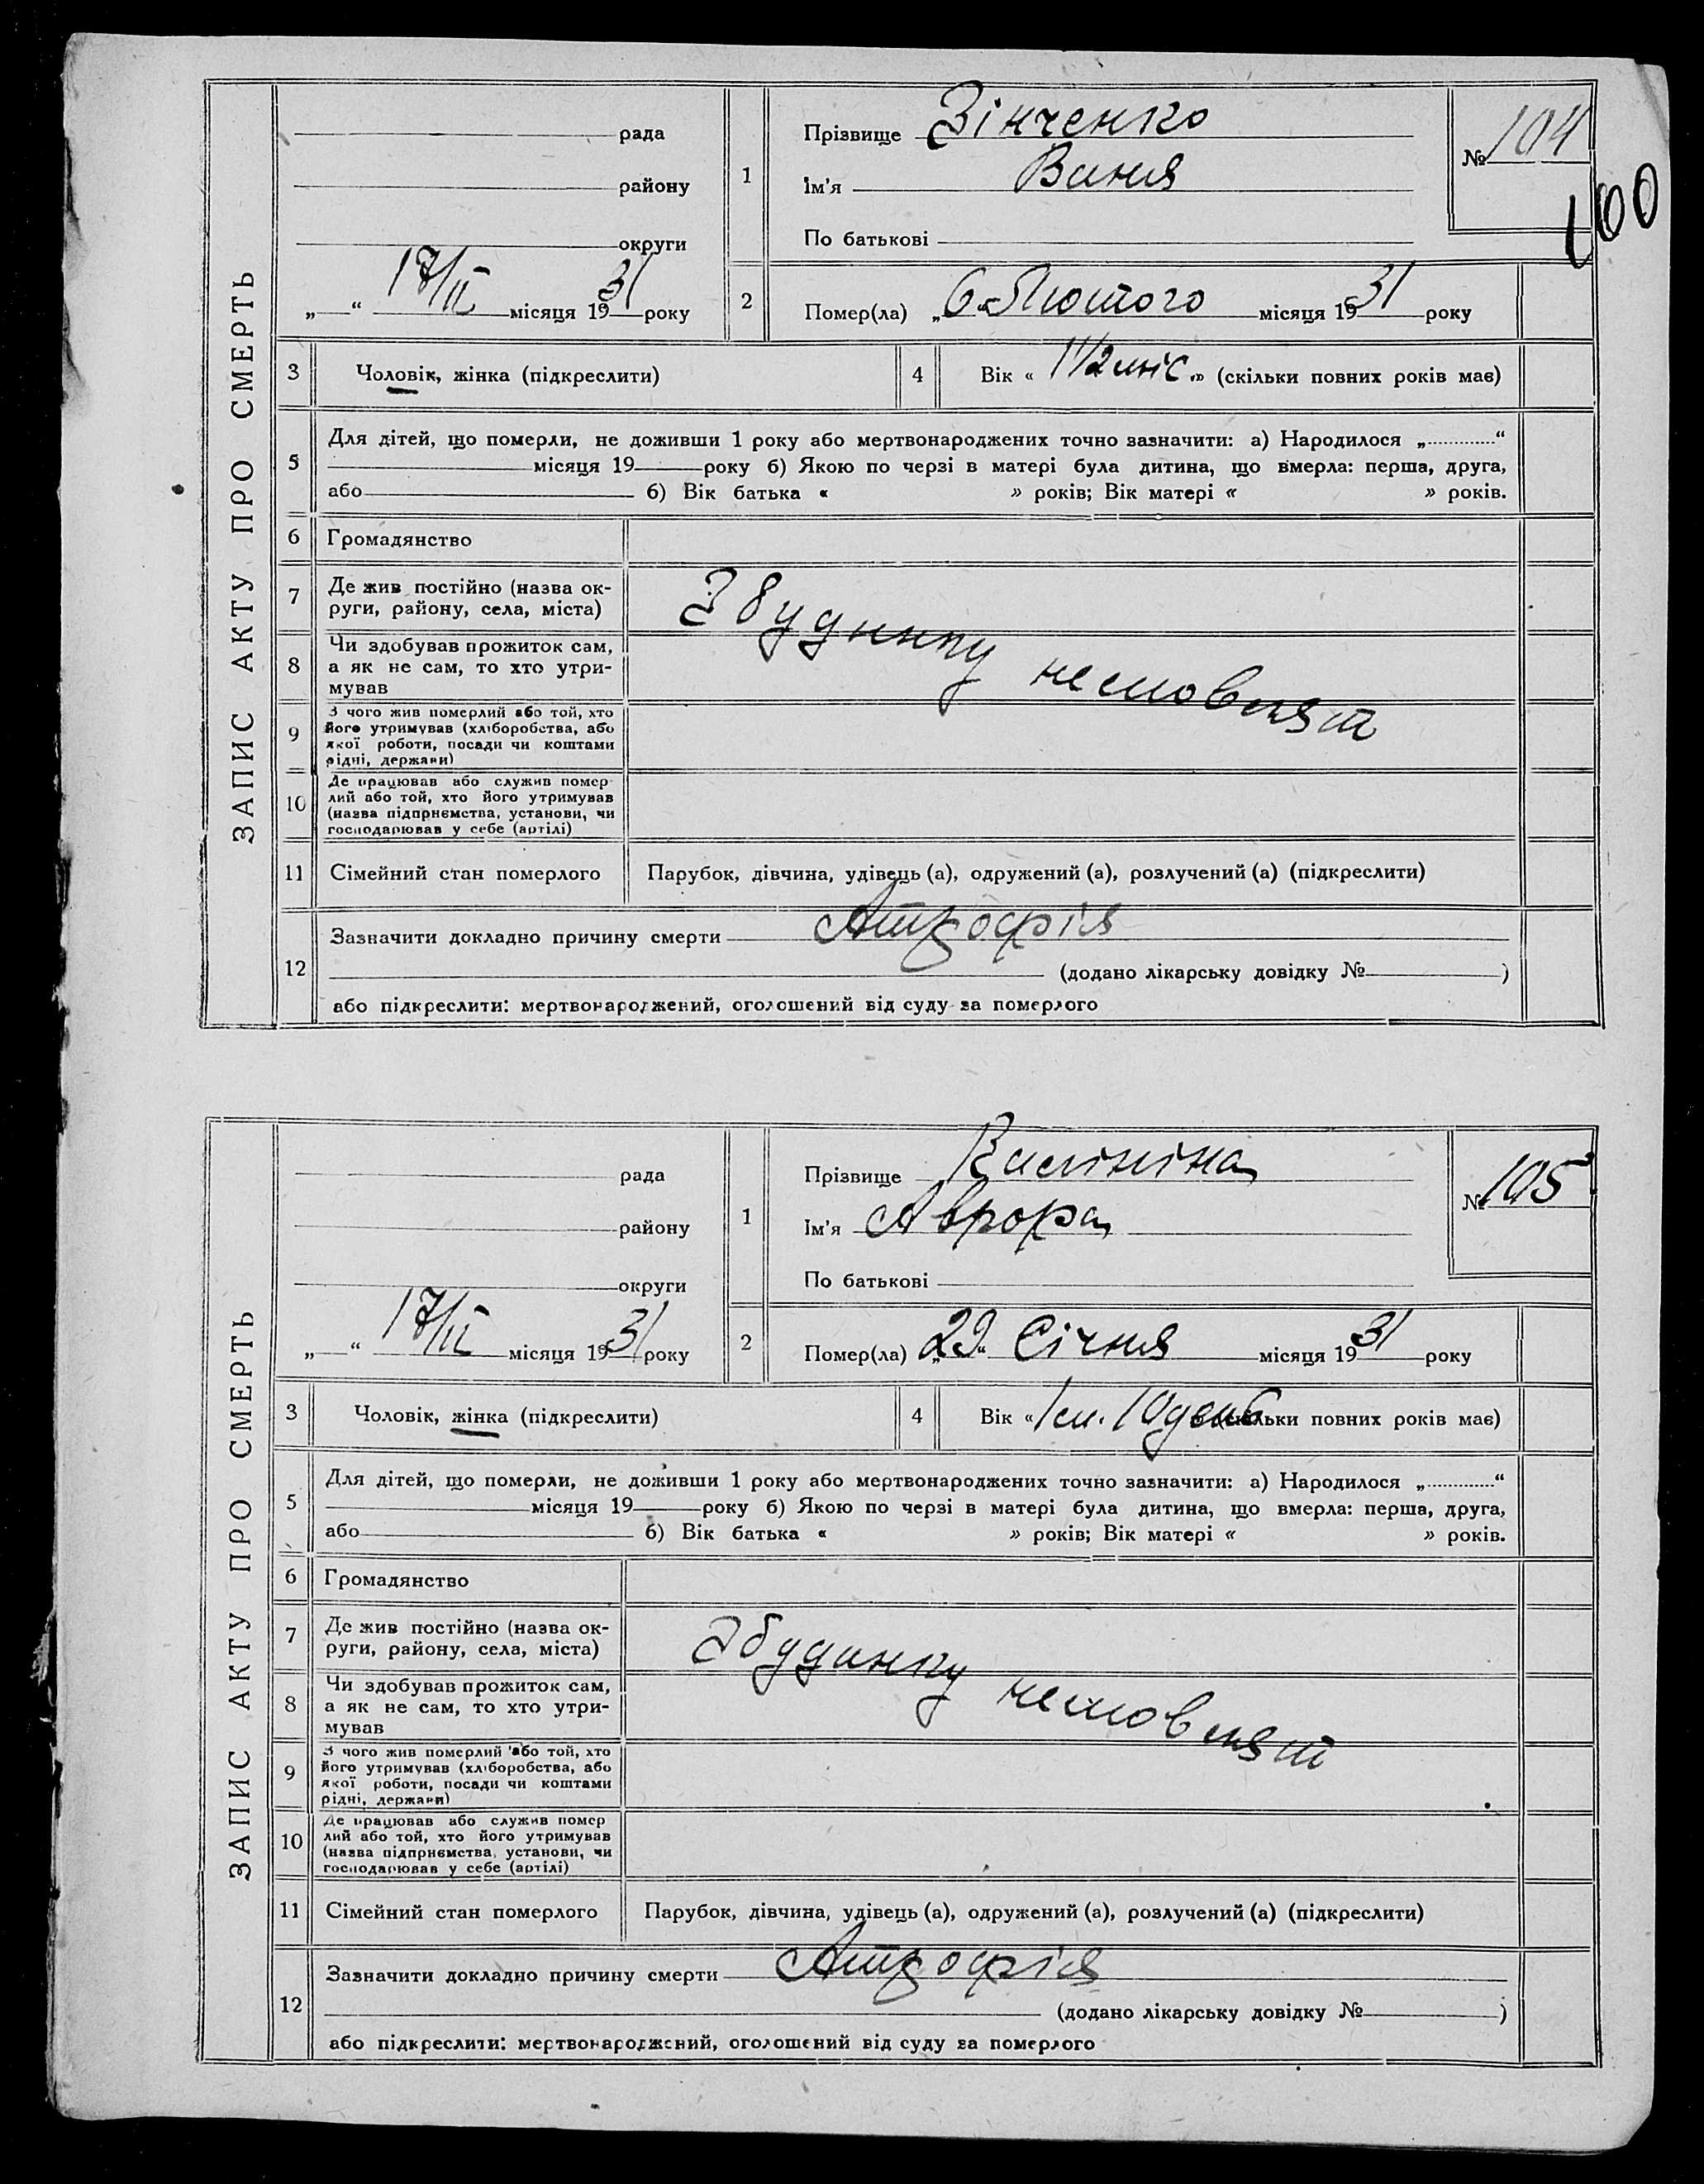 ЗАПИС АКТУ ПРО СМЕРТЬ
рада
району
округи
„ “ 17/II місяця 1931 року
1
Прізвище Зінченко
Ім'я Ваня
По батькові
№ 104
100
2
Помер(ла) „6“ Лютого місяця 1931 року
3
Чоловік, жінка (підкреслити)
4
Вік « 1 1/2 міс. » (скільки повних років має)
5
Для дітей, що померли, не доживши 1 року або мертвонароджених точно зазначити: а) Народилося „ “
місяця 19 року б) Якою по черзі в матері була дитина, що вмерла: перша, друга,
або б) Вік батька « » років; Вік матері « » років.
6
Громадянство
7
Де жив постійно (назва ок-
руги, району, села, міста)
З будинку немовлят
8
Чи здобував прожиток сам,
а як не сам, то хто утри-
мував
9
З чого жив померлий або той, хто
його утримував (хліборобства, або
якої роботи, посади чи коштами
рідні, держави)
10
Де працював або служив помер
лий або той, хто його утримував
(назва підприємства, установи, чи
господарював у себе (артілі)
11
Сімейний стан померлого
Парубок, дівчина, удівець (а), одружений (а), розлучений (а) (підкреслити)
12
Зазначити докладно причину смерти Атрофія
(додано лікарську довідку № )
або підкреслити: мертвонароджений, оголошений від суду за померлого
ЗАПИС АКТУ ПРО СМЕРТЬ
рада
району
округи
„ “ 17/II місяця 1931 року
1
Прізвище Калініна
Ім'я Аврора
По батькові
№ 105
2
Помер(ла) „29“ Січня місяця 1931 року
3
Чоловік, жінка (підкреслити)
4
Вік « 1 м. 10 день (скільки повних років має)
5
Для дітей, що померли, не доживши 1 року або мертвонароджених точно зазначити: а) Народилося „ “
місяця 19 року б) Якою по черзі в матері була дитина, що вмерла: перша, друга,
або б) Вік батька « » років; Вік матері « » років.
6
Громадянство
7
Де жив постійно (назва ок-
руги, району, села, міста)
З будинку немовлят
8
Чи здобував прожиток сам,
а як не сам, то хто утри-
мував
9
З чого жив померлий або той, хто
його утримував (хліборобства, або
якої роботи, посади чи коштами
рідні, держави)
10
Де працював або служив помер
лий або той, хто його утримував
(назва підприємства, установи, чи
господарював у себе (артілі)
11
Сімейний стан померлого
Парубок, дівчина, удівець (а), одружений (а), розлучений (а) (підкреслити)
12
Зазначити докладно причину смерти Атрофія
(додано лікарську довідку № )
або підкреслити: мертвонароджений, оголошений від суду за померлого